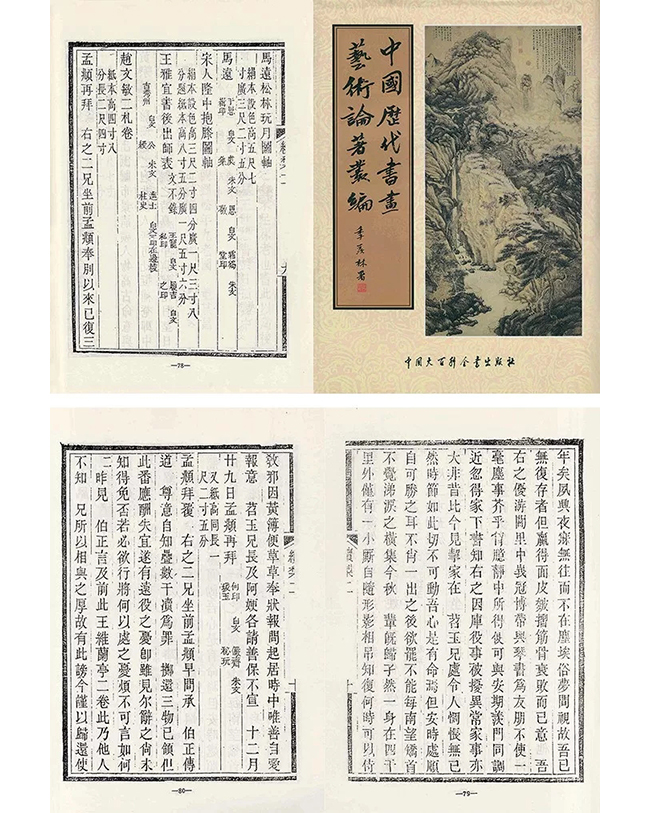 馬遠松林玩月圖軸
絹本設色高五尺七
寸廣三尺二寸五分
馬遠
宋人隆中抱膝圖軸
絹本設色高三尺二寸四分廣一尺三寸八
分題紙本高八寸五分廣一尺五寸六分
王雅宜書後出師表 文不錄
趙文敏二札卷
紙本高四寸八
分長二尺四寸
孟頫再拜 右之二兄坐前孟頫奉別以來已復三
—78—
中國歷代書畫
藝術論著叢編
季羨林署
中国大百科全书出版社
年矣夙興夜寐無往而不在塵埃俗夢間視故吾已
無復存者但贏得面皮皺摺筋骨衰敗而已意 吾
右之優游閭里中峩冠博帶與琴書為友朋不使一
毫塵事芥乎胷臆靜中所得便可與安期羨門同調
近忽得家下書知右之因庫役事被擾異常家事亦
大非昔比今見挈家在 苕玉兄處令人惘悵無已
然時節如此切不可動吾心是有命焉但安時處順
自可勝之耳不肖一出之後欲罷不能每南望矯首
不覺涕淚之橫集今秋 輩既歸孑然一身在四千
里外僅有一小廝自隨形影相弔知復何時可以侍
—79—
敎邪因黃簿便草草奉狀報問起居時中唯善自愛
報意 苕玉兄長及阿㛐各請善保不宣 十二月
廿九日孟頫再拜
又紙高同長一
尺二寸五分
孟頫拜覆 右之二兄坐前孟頫早間承 伯正傳
道 尊意自知疊數干瀆爲罪 擲還三物已領但
此番應酬失宜遂有遠役之憂卽雖見尔辭之尙未
知得免否若必欲行將何以處之憂煩不可言如何
二昨見 伯正言及前此王維蘭亭二卷此乃他人
不知 兄所以相與之厚故有此謗今謹以歸還使
—80—